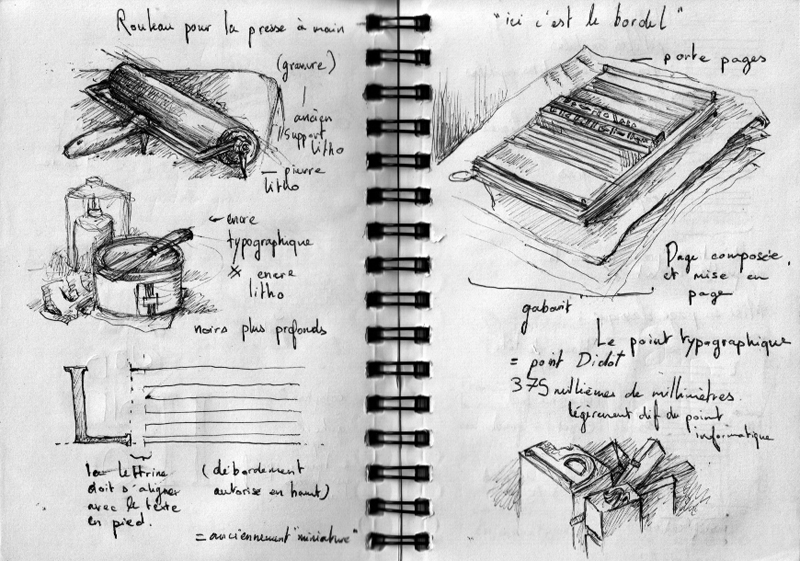 Rouleau pour la presse à main
(gravure)
ancien
support
litho
pierre
litho
encre
typographique
≠ encre
litho
noirs plus profonds
L
la lettrine
doit s'aligner
avec le texte
en pied.
(débordement
autorisé en haut)
= anciennement "miniature"
"ici c'est le bordel"
porte pages
Page composée,
et mise en
page
gabarit
Le point typographique
= point Didot
375 millièmes de millimètres.
légèrement dif du point
informatique